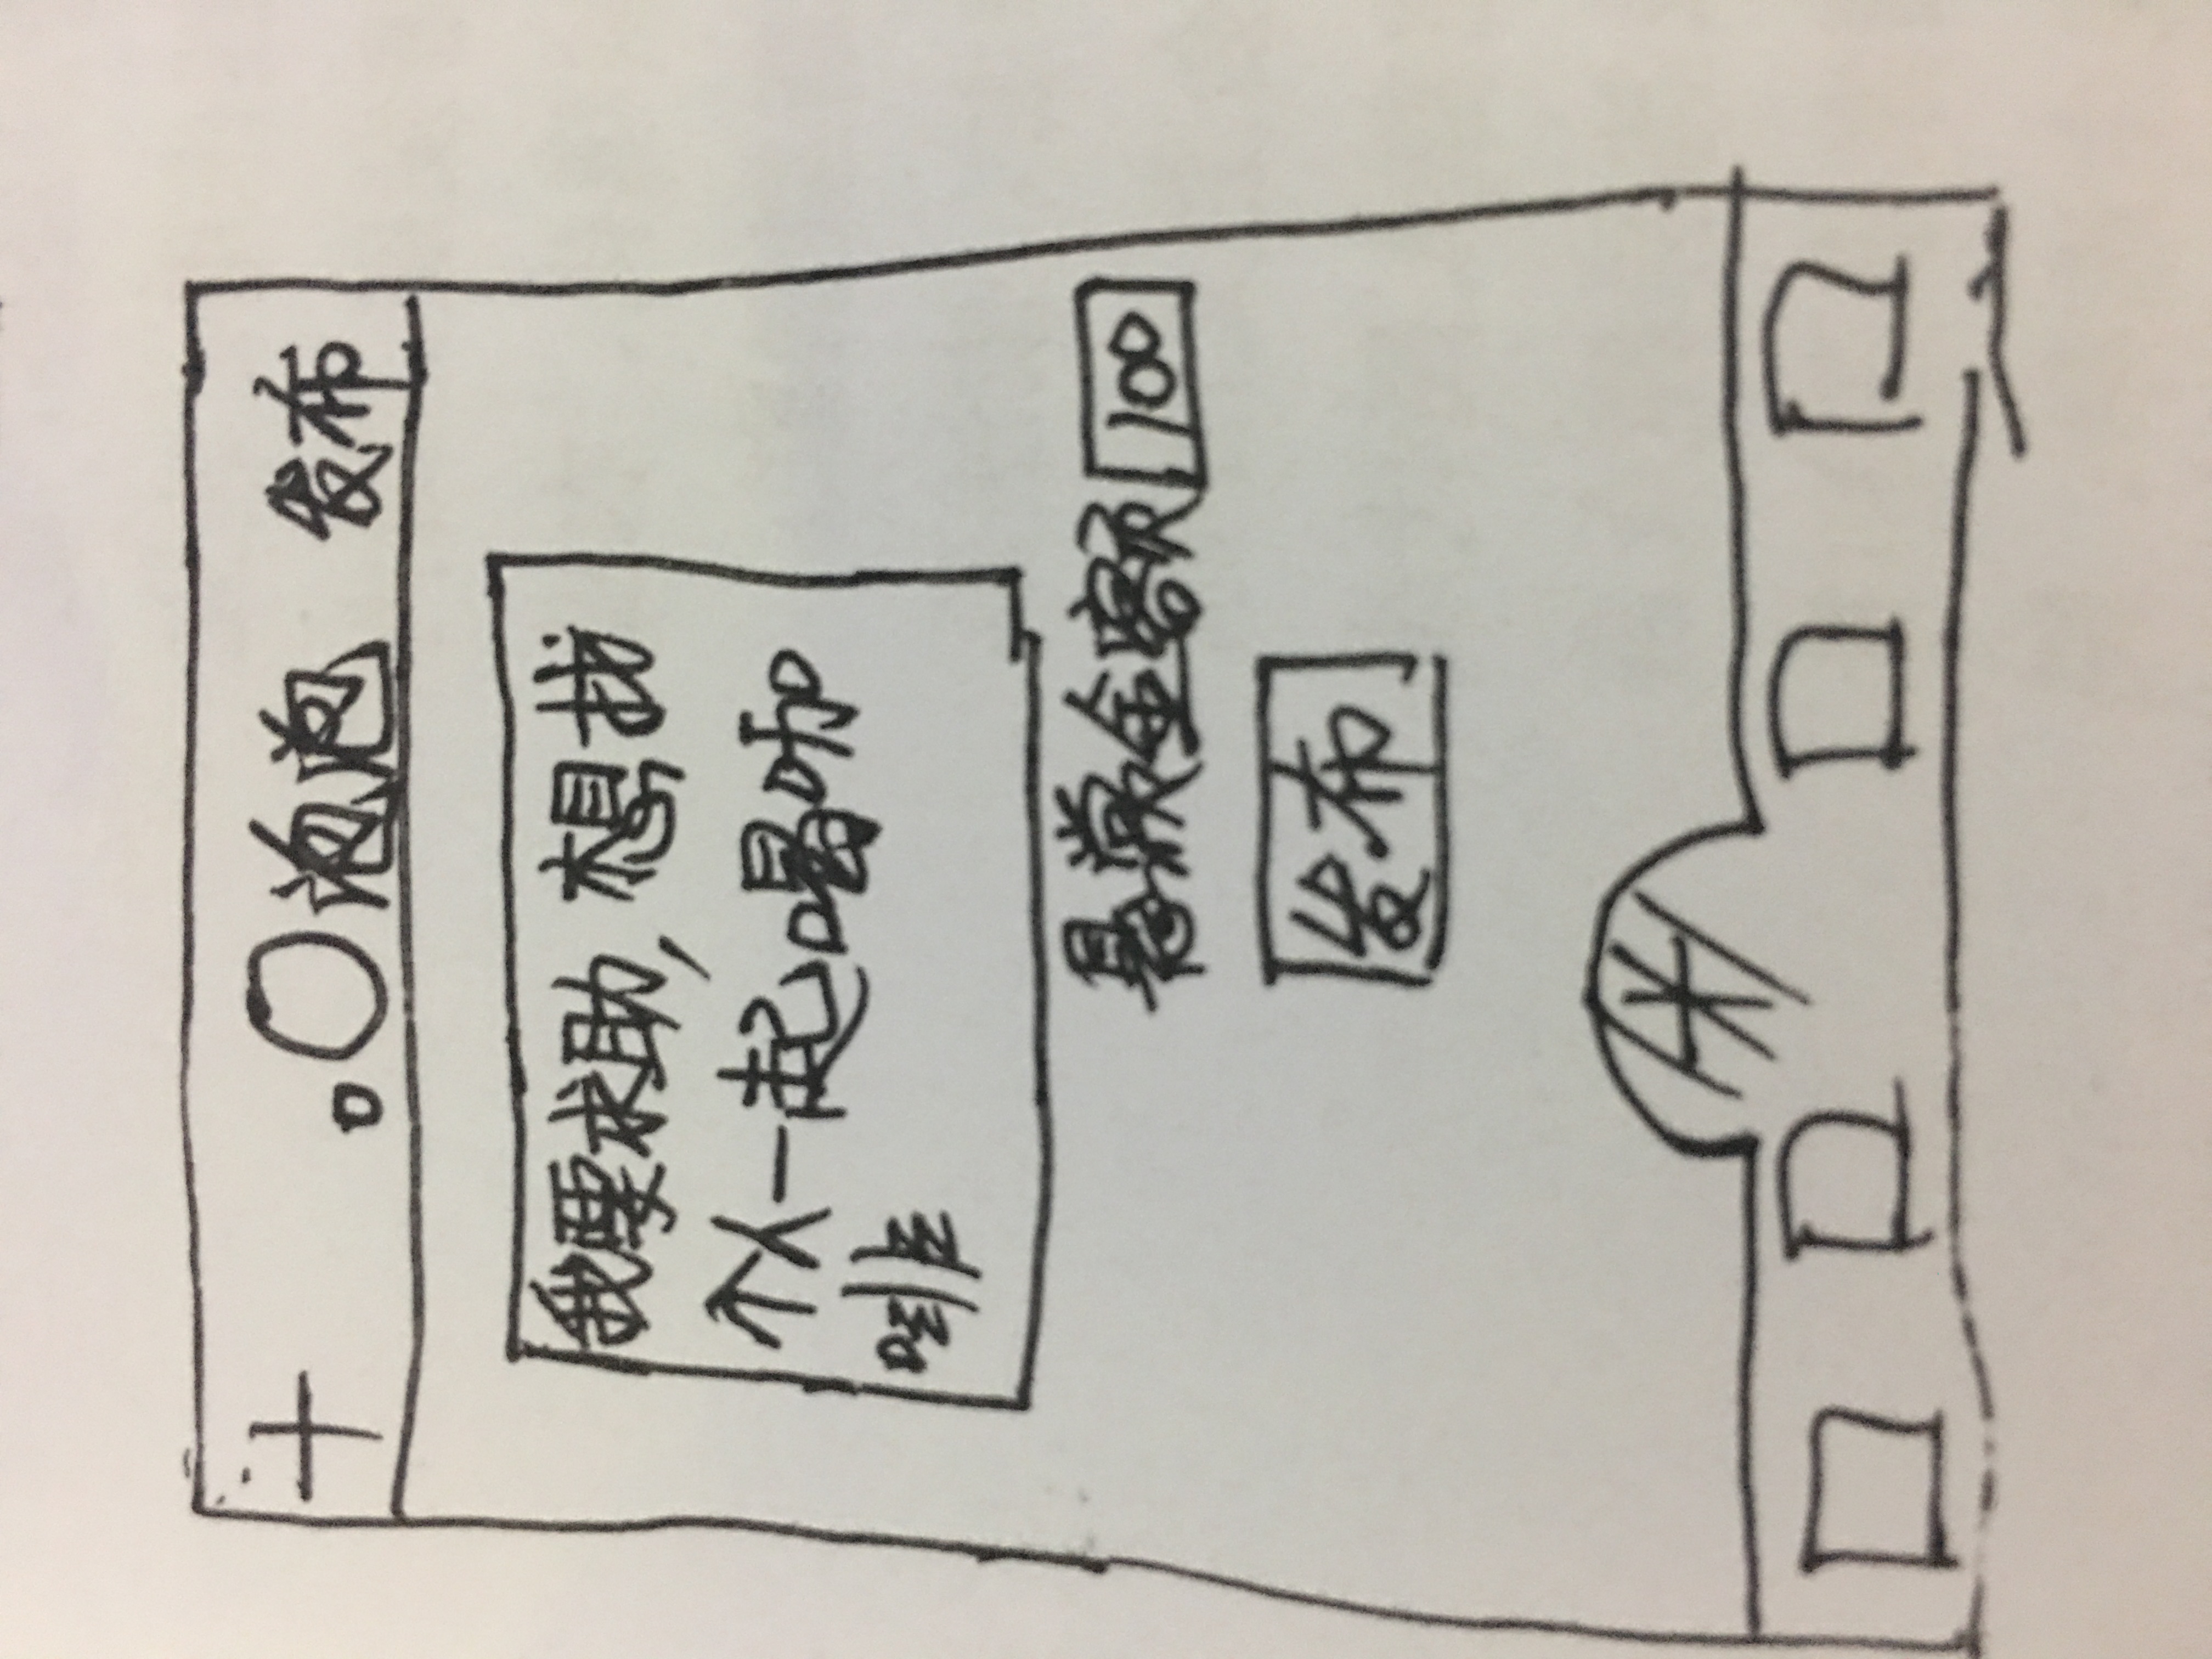 泡泡 发布
我要求助,想找
个人一起喝咖
啡
悬赏金额 100
发布